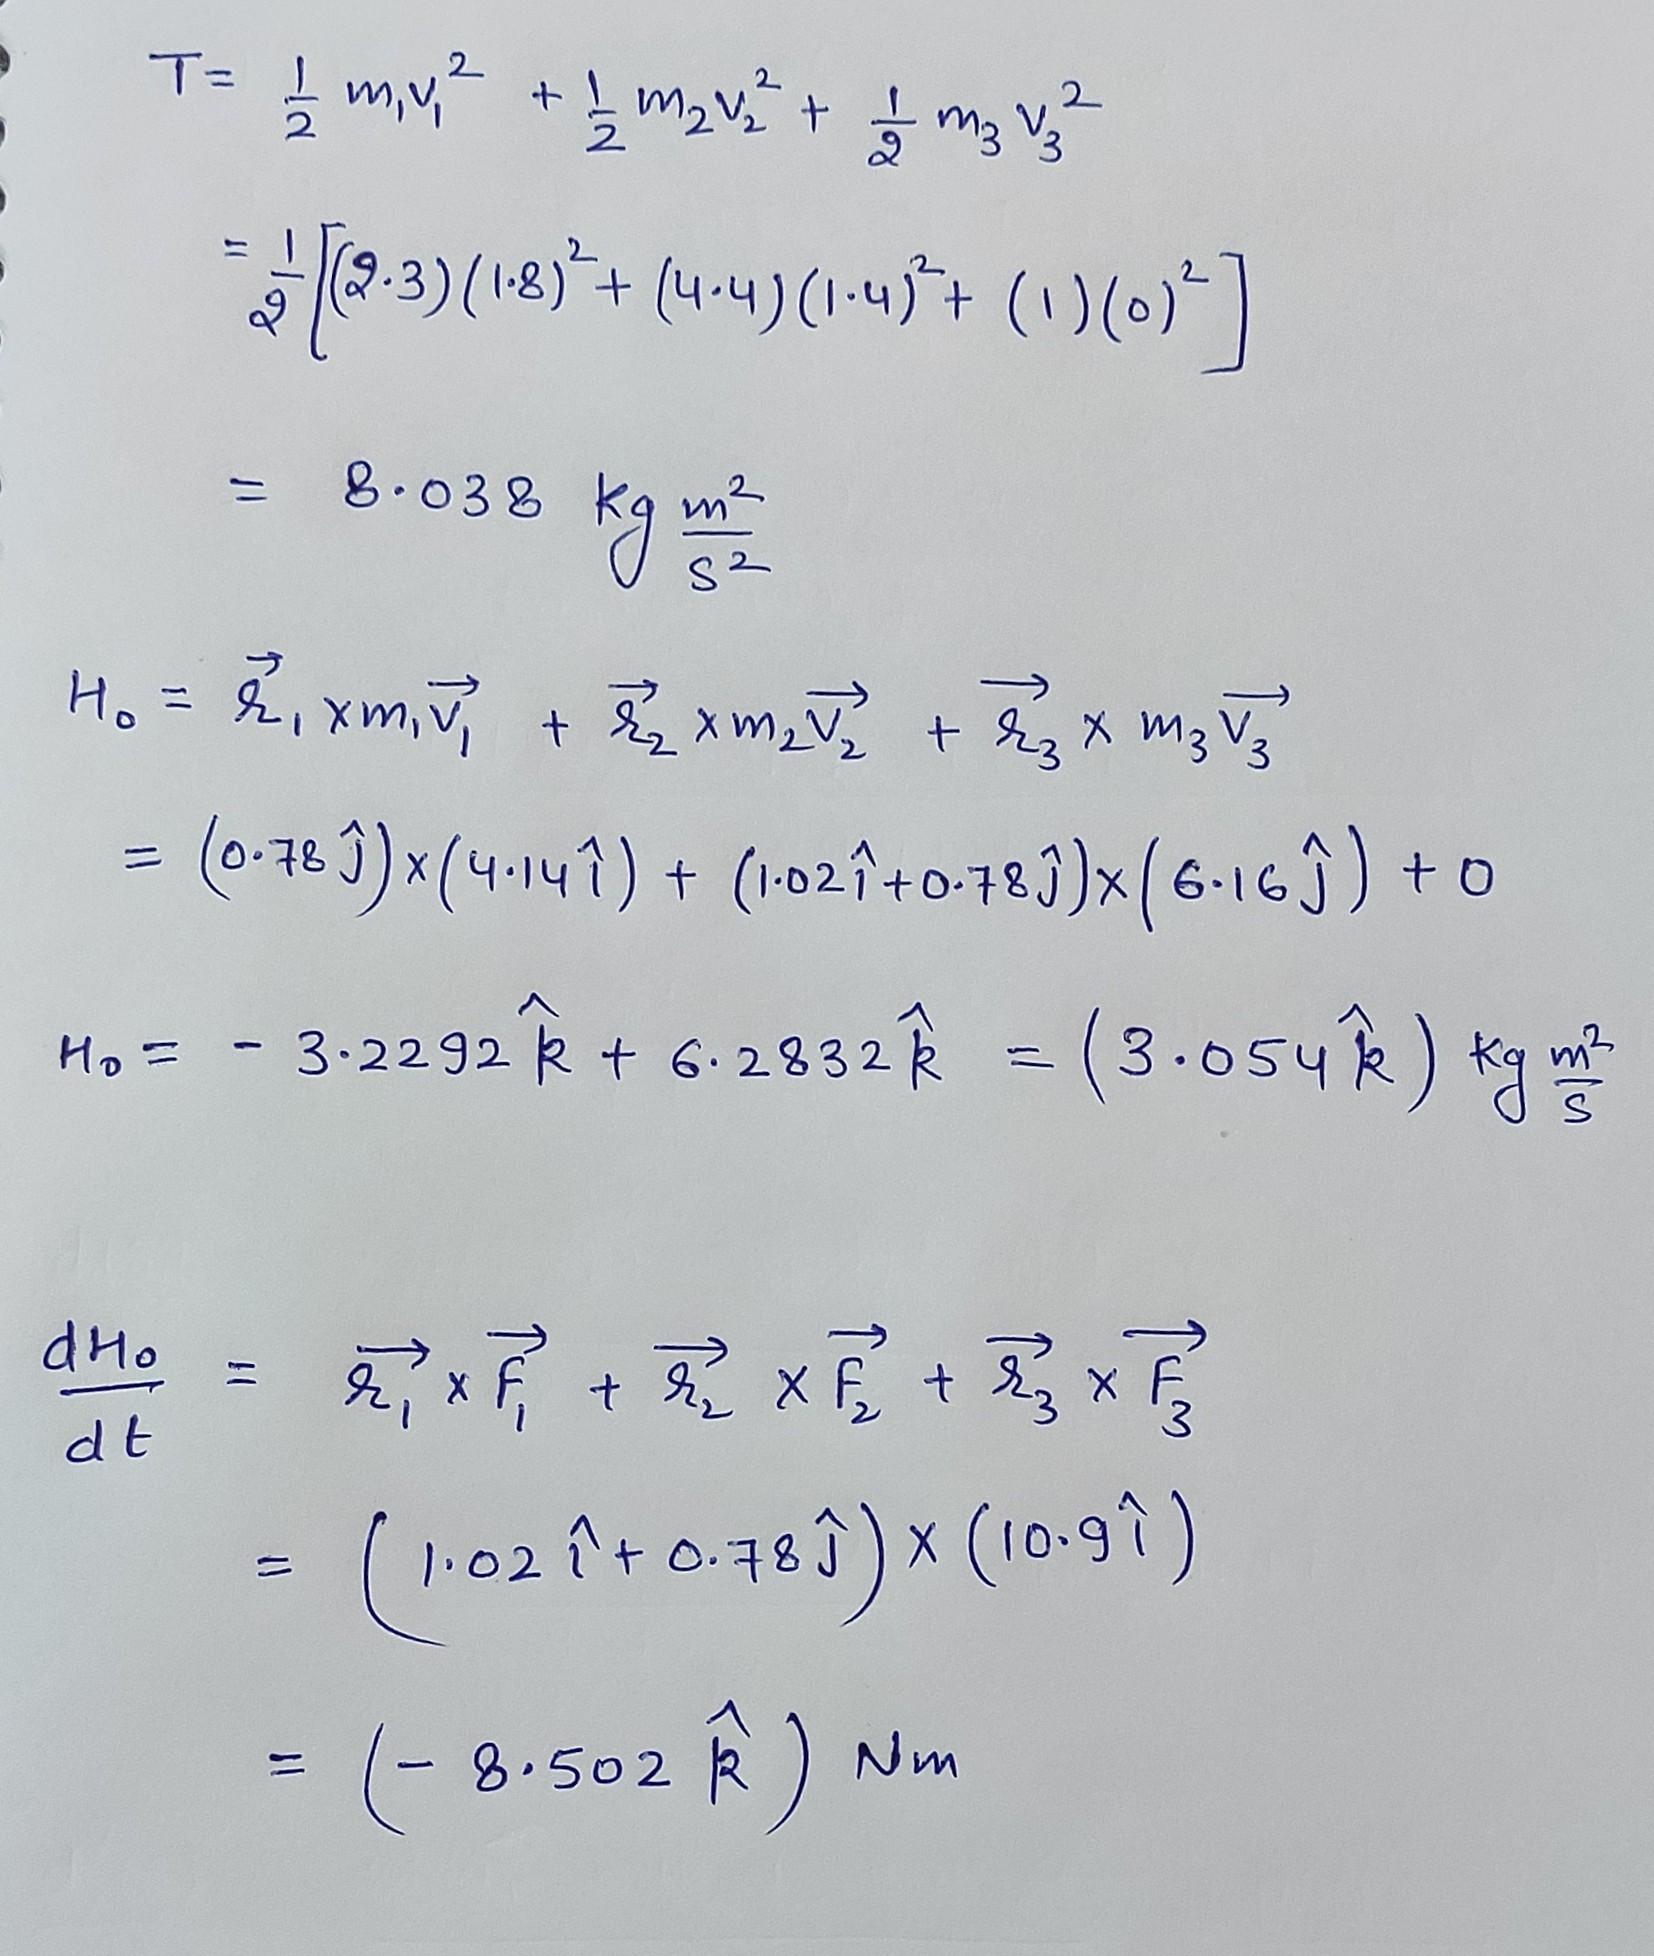 T = 1/2 m₁v₁² + 1/2 m₂v₂² + 1/2 m₃v₃²
= 1/2 [(2.3)(1.8)² + (4.4)(1.4)² + (1)(0)²]
= 8.038 kg m²/s²
H₀ = r⃗₁ × m₁v⃗₁ + r⃗₂ × m₂v⃗₂ + r⃗₃ × m₃v⃗₃
= (0.78 ĵ) × (4.14 î) + (1.02 î + 0.78 ĵ) × (6.16 ĵ) + 0
H₀ = - 3.2292 k̂ + 6.2832 k̂ = (3.054 k̂) kg m²/s
dH₀/dt = r⃗₁ × F⃗₁ + r⃗₂ × F⃗₂ + r⃗₃ × F⃗₃
= (1.02 î + 0.78 ĵ) × (10.9 î)
= (- 8.502 k̂) Nm